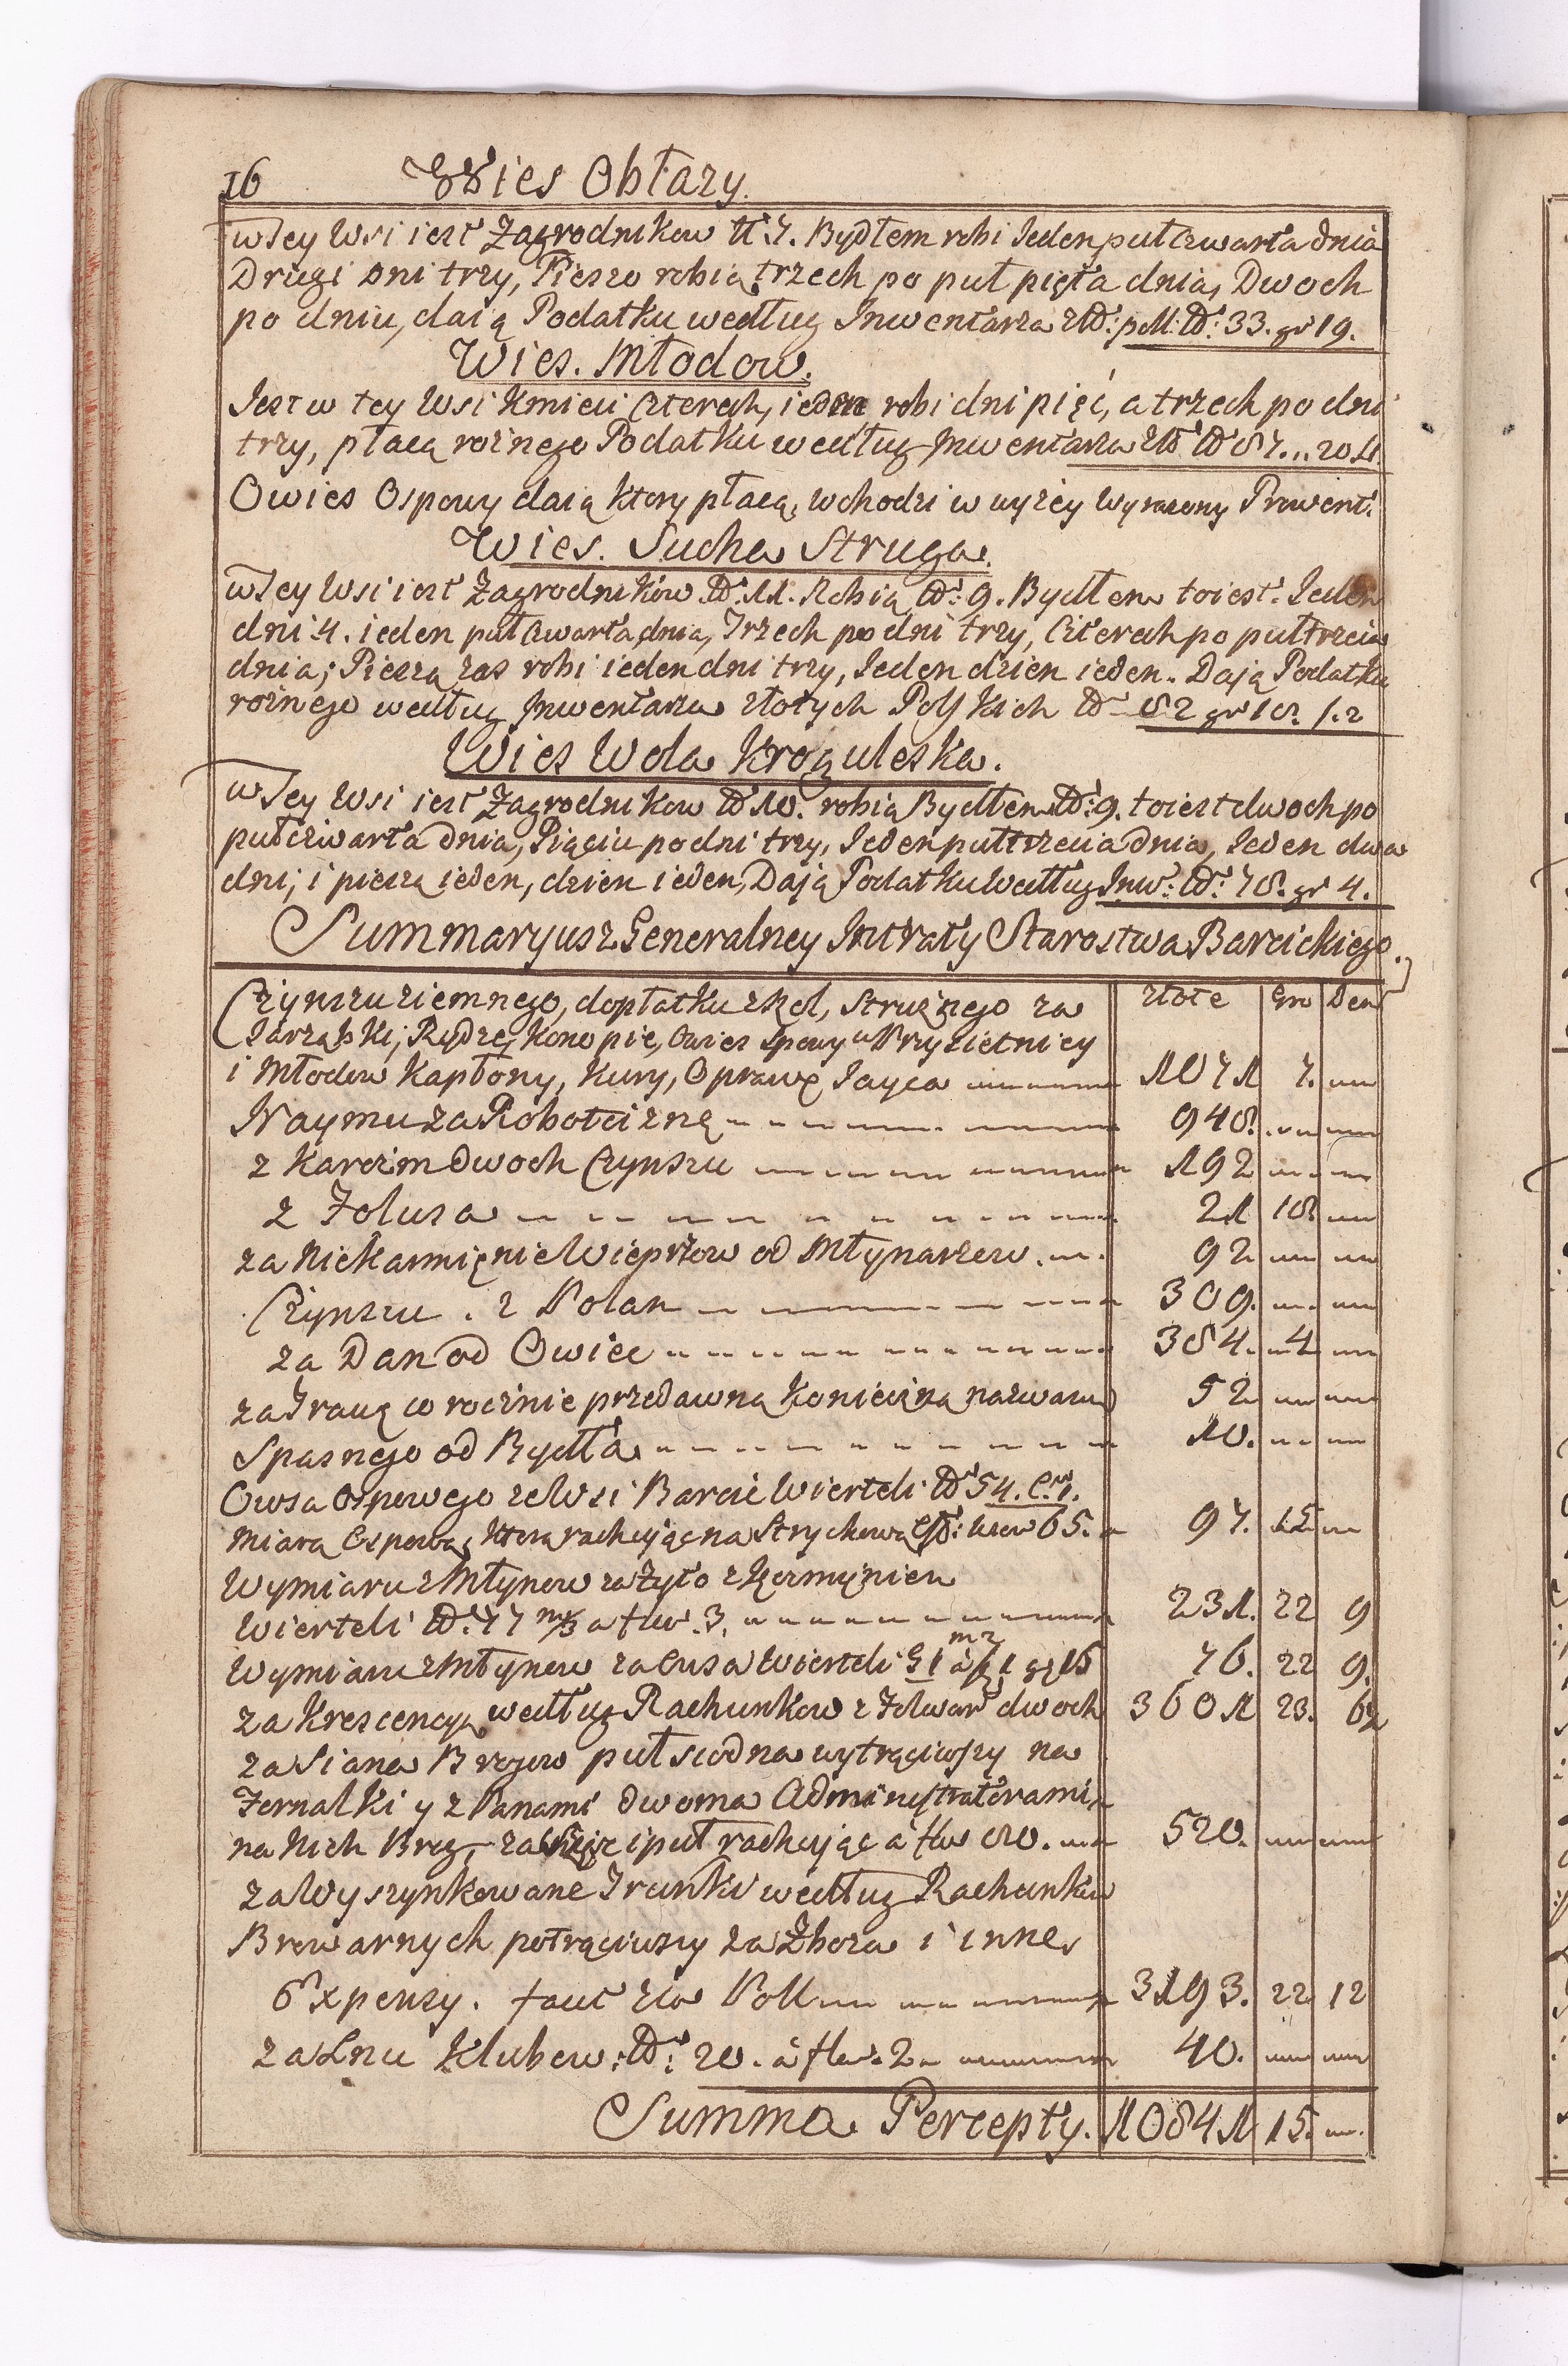 16 Wies Obłazy.
w Tey Wsi iest Zagrodnikow Nr. 7. Bydłem robi Jeden puł czwarta dnia
Drugi dni trzy, Pieszo robią trzech po puł pięta dnia, Dwoch
po dniu, daią Podatku według Inwentarza Złł: poll: Nr: 33. gr 19.
Wies. Młodow.
Jest w tey Wsi Kmieci Czterech, ieden robi dni pięć, a trzech po dni
trzy, płacą rożnego Podatku według Inwentarza Nr 87... 20
Owies Ospowy daią ktory płacą, wchodzi w wyżey wyrazony Prowent.
Wies. Sucha Struga.
w Tey Wsi iest Zagrodników Nr: 11. Robią Nr: 9. Bydłem toiest: Jeden
dni 4. ieden puł czwarta dnia, Trzech po dni trzy, Czterech po pułtrzecia
dnia; Pieszą zas robi ieden dni trzy, Jeden dzien ieden. Dają Podatku
rożnego według Inwentarza złotych Polskich Nr 82 gr 18. /.2
Wies Wola Kroguleska.
w Tey Wsi iest Zagrodnikow Nr 10. robią Bydłem Nr: 9. toiest dwoch po
pułczwarta dnia, Piąciu po dni trzy, Jeden pułtrzecia dnia, Jeden dwa
dni; i pieszą ieden, dzien ieden, Dają Podatku według Inw: Nr: 78. gr 4.
Summaryusz Generalney Intraty Starostwa Barcickiego.
Czynszu ziemnego, dopłatku z kol, Strużnego za złote Gro Den
Jarząbki, Rydze, Konopie, Owies Spowy w Przysietnicy
i Młodow Kapłony, Kury, Oprawę Jayca 1071 7.
Naymu za Robotciznę 948.
z Karczm dwoch Czynszu 192
z Folusa 21 18
za Niekarmięnie Wieprzow od Młynarzow 92
Czynszu . z Polan 309.
za Dan od Owiec 384. 4
za Trawę corocznie przedawną Konieciną nazwaną 52
Spasnego od Bydła 10.
Owsa Ospowego ze Wsi Barcic Wierteli Nr 54. C. 1.
miarą Ospową, ktora rachując na Strychową 65. 97. 15
Wymiaru z Młynow za Żyto z Karmięniem
Wierteli Nr: 77 a flor. 3. 231. 22 9
Wymiaru z Młynow za Owsa Wierteli 51 a fl 1 gr 15 76. 22 9.
za Krescencyę według Rachunkow z Folwar dwoch 3601 23. 6
za Siana Brogow puł siodma wytrąciwszy na
Fornalki y z Panami dwoma Administratorami
na Nich Brog, za i puł rachując a flor 80. 520.
za Wyszynkowane Trunki według Rachunkow
Browarnych potrąciwszy za Zboza i inne
Expensy. facit Poll 3193. 22 12
za Lnu Klubow: Nr: 20. a flor. 2 40.
Summa Percepty. 10841 15.